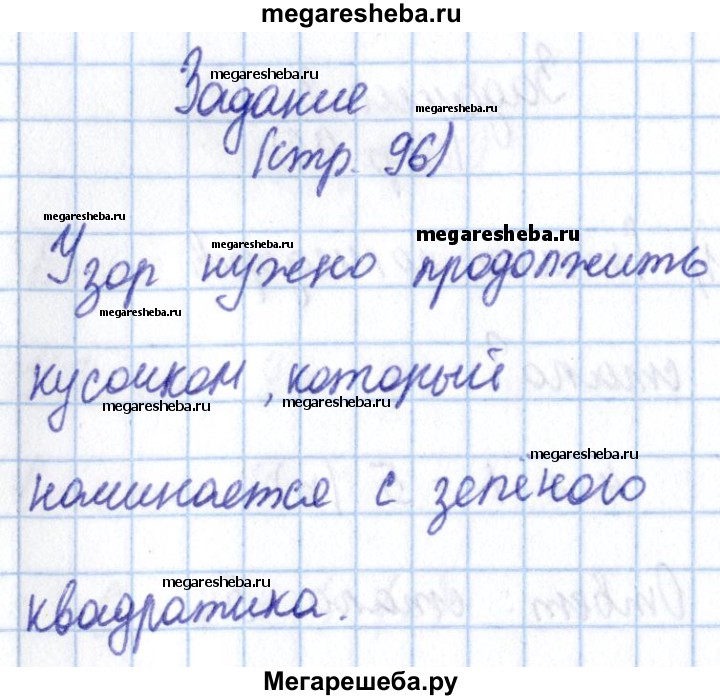 megaresheba.ru
megaresheba.ru
Задание
megaresheba.ru
(стр. 96)
megaresheba.ru
megaresheba.ru
megaresheba.ru
Узор нужно продолжить
megaresheba.ru
кусочком, который
megaresheba.ru
megaresheba.ru
megaresheba.ru
начинается с зелёного
megaresheba.ru
квадратика.
Мегарешеба.ру